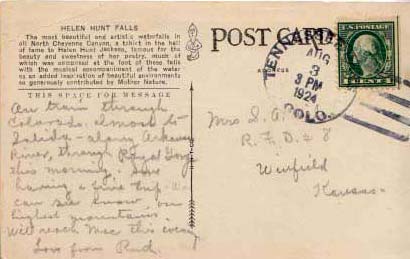 HELEN HUNT FALLS
The most beautiful and artistic waterfalls in
all North Cheyenne Canyon, a tribute in the hall
of fame to Helen Hunt Jackson, famous for the
beauty and sweetness of her poetry, much of
which was composed at the foot of these falls
with the musical accompaniment of the water
as an added inspiration of beautiful environments
so generously contributed by Mother Nature.
THIS SPACE FOR MESSAGE
POST CARD
ADDRESS
TENN
AUG
3
3 PM
1924
COLO.
1 CENT 1
On train through
Colorado, almost to
Salida along Arkansas
River, through Royal Gorge
this morning.
having a fine trip.
can see snow on
highest mountains.
Will reach Mac this evening
Love from Rud.
Mrs S. A.
R.F.D. # 8
Winfield
Kansas.